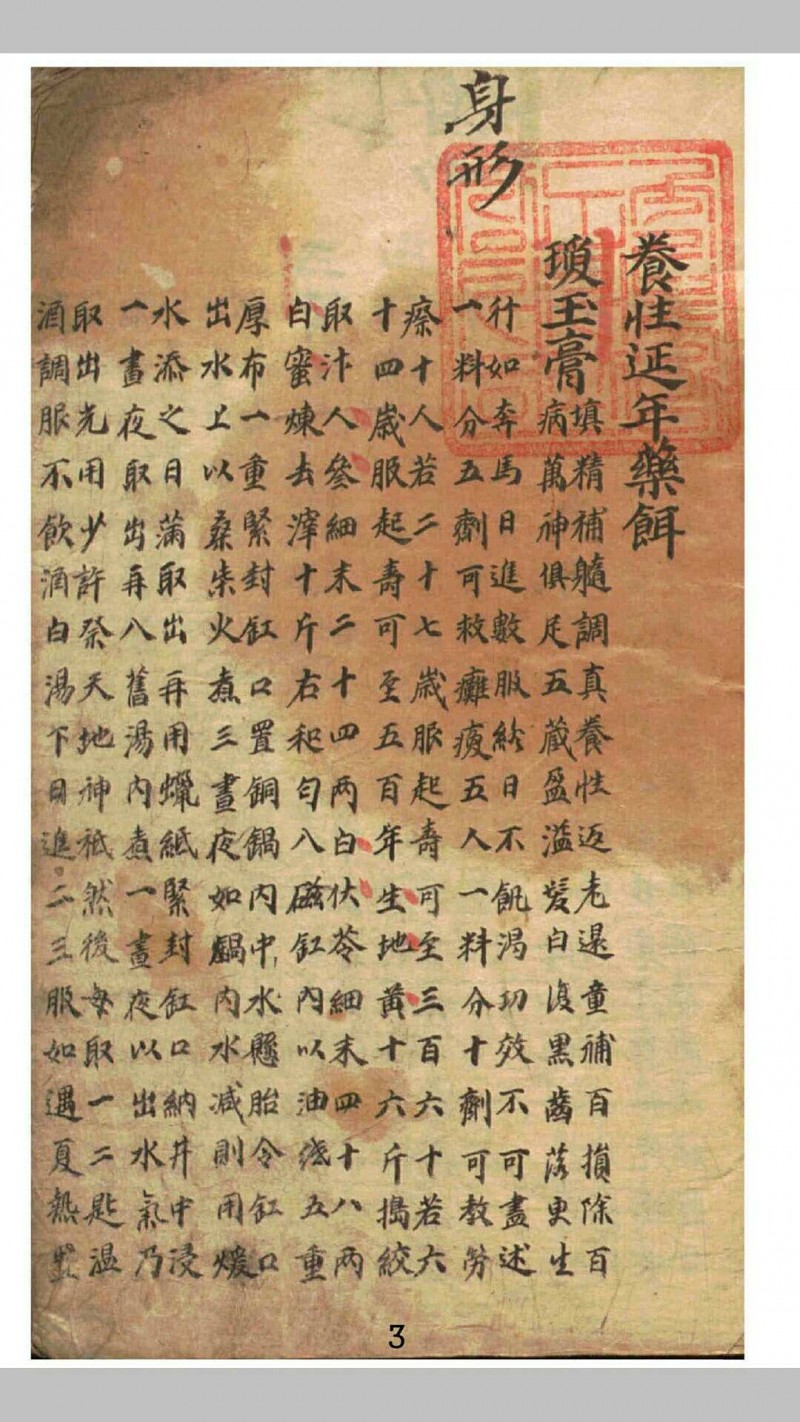 身形
養性延年藥餌
瓊玉膏
填精補髓調真養性返老還童補百損除百
病萬神俱足五藏盈溢髮白復黑齒落更生
行如奔馬日進數服終日不飢渴功效不可盡述
一料分五劑可救癱瘓五人一料分十劑可救勞
瘵十人若二十七歲服起壽可至三百六十若六
十四歲服起壽可至五百年生地黃十六斤搗絞
取汁人參細末二十四兩白伏苓細末四十八兩
白蜜煉去滓十斤右和匀入磁缸內以油紙五重
厚布一重緊封缸口置銅鍋內中水懸胎令缸口
出水上以桑柴火煮三晝夜如鍋內水減則用煖
水添之日滿取出再用蠟紙緊封缸口納井中浸
一晝夜取出再入舊湯內煮一晝夜以出水氣乃
取出先用少許祭天地神祇然後每取一二匙溫
酒調服不飲酒白湯下日進二三服如遇夏熱置
3